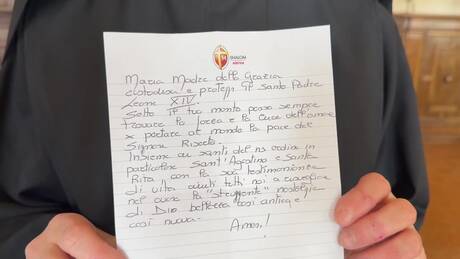 SHALOM
Maria Madre della Grazia
custodisci e proteggi il Santo Padre
Leone XIV.
Sotto il tuo manto possa sempre
trovare la forza e la luce dell'amore
x portare al mondo la pace del
Signore Risorto.
Insieme ai santi del ns ordine in
particolare Sant'Agostino e Santa
Rita con la sua testimonianza
di vita aiuti tutti noi a riaccendere
nel cuore la "struggente" nostalgia
di Dio bellezza così antica e
così nuova.
Amen!